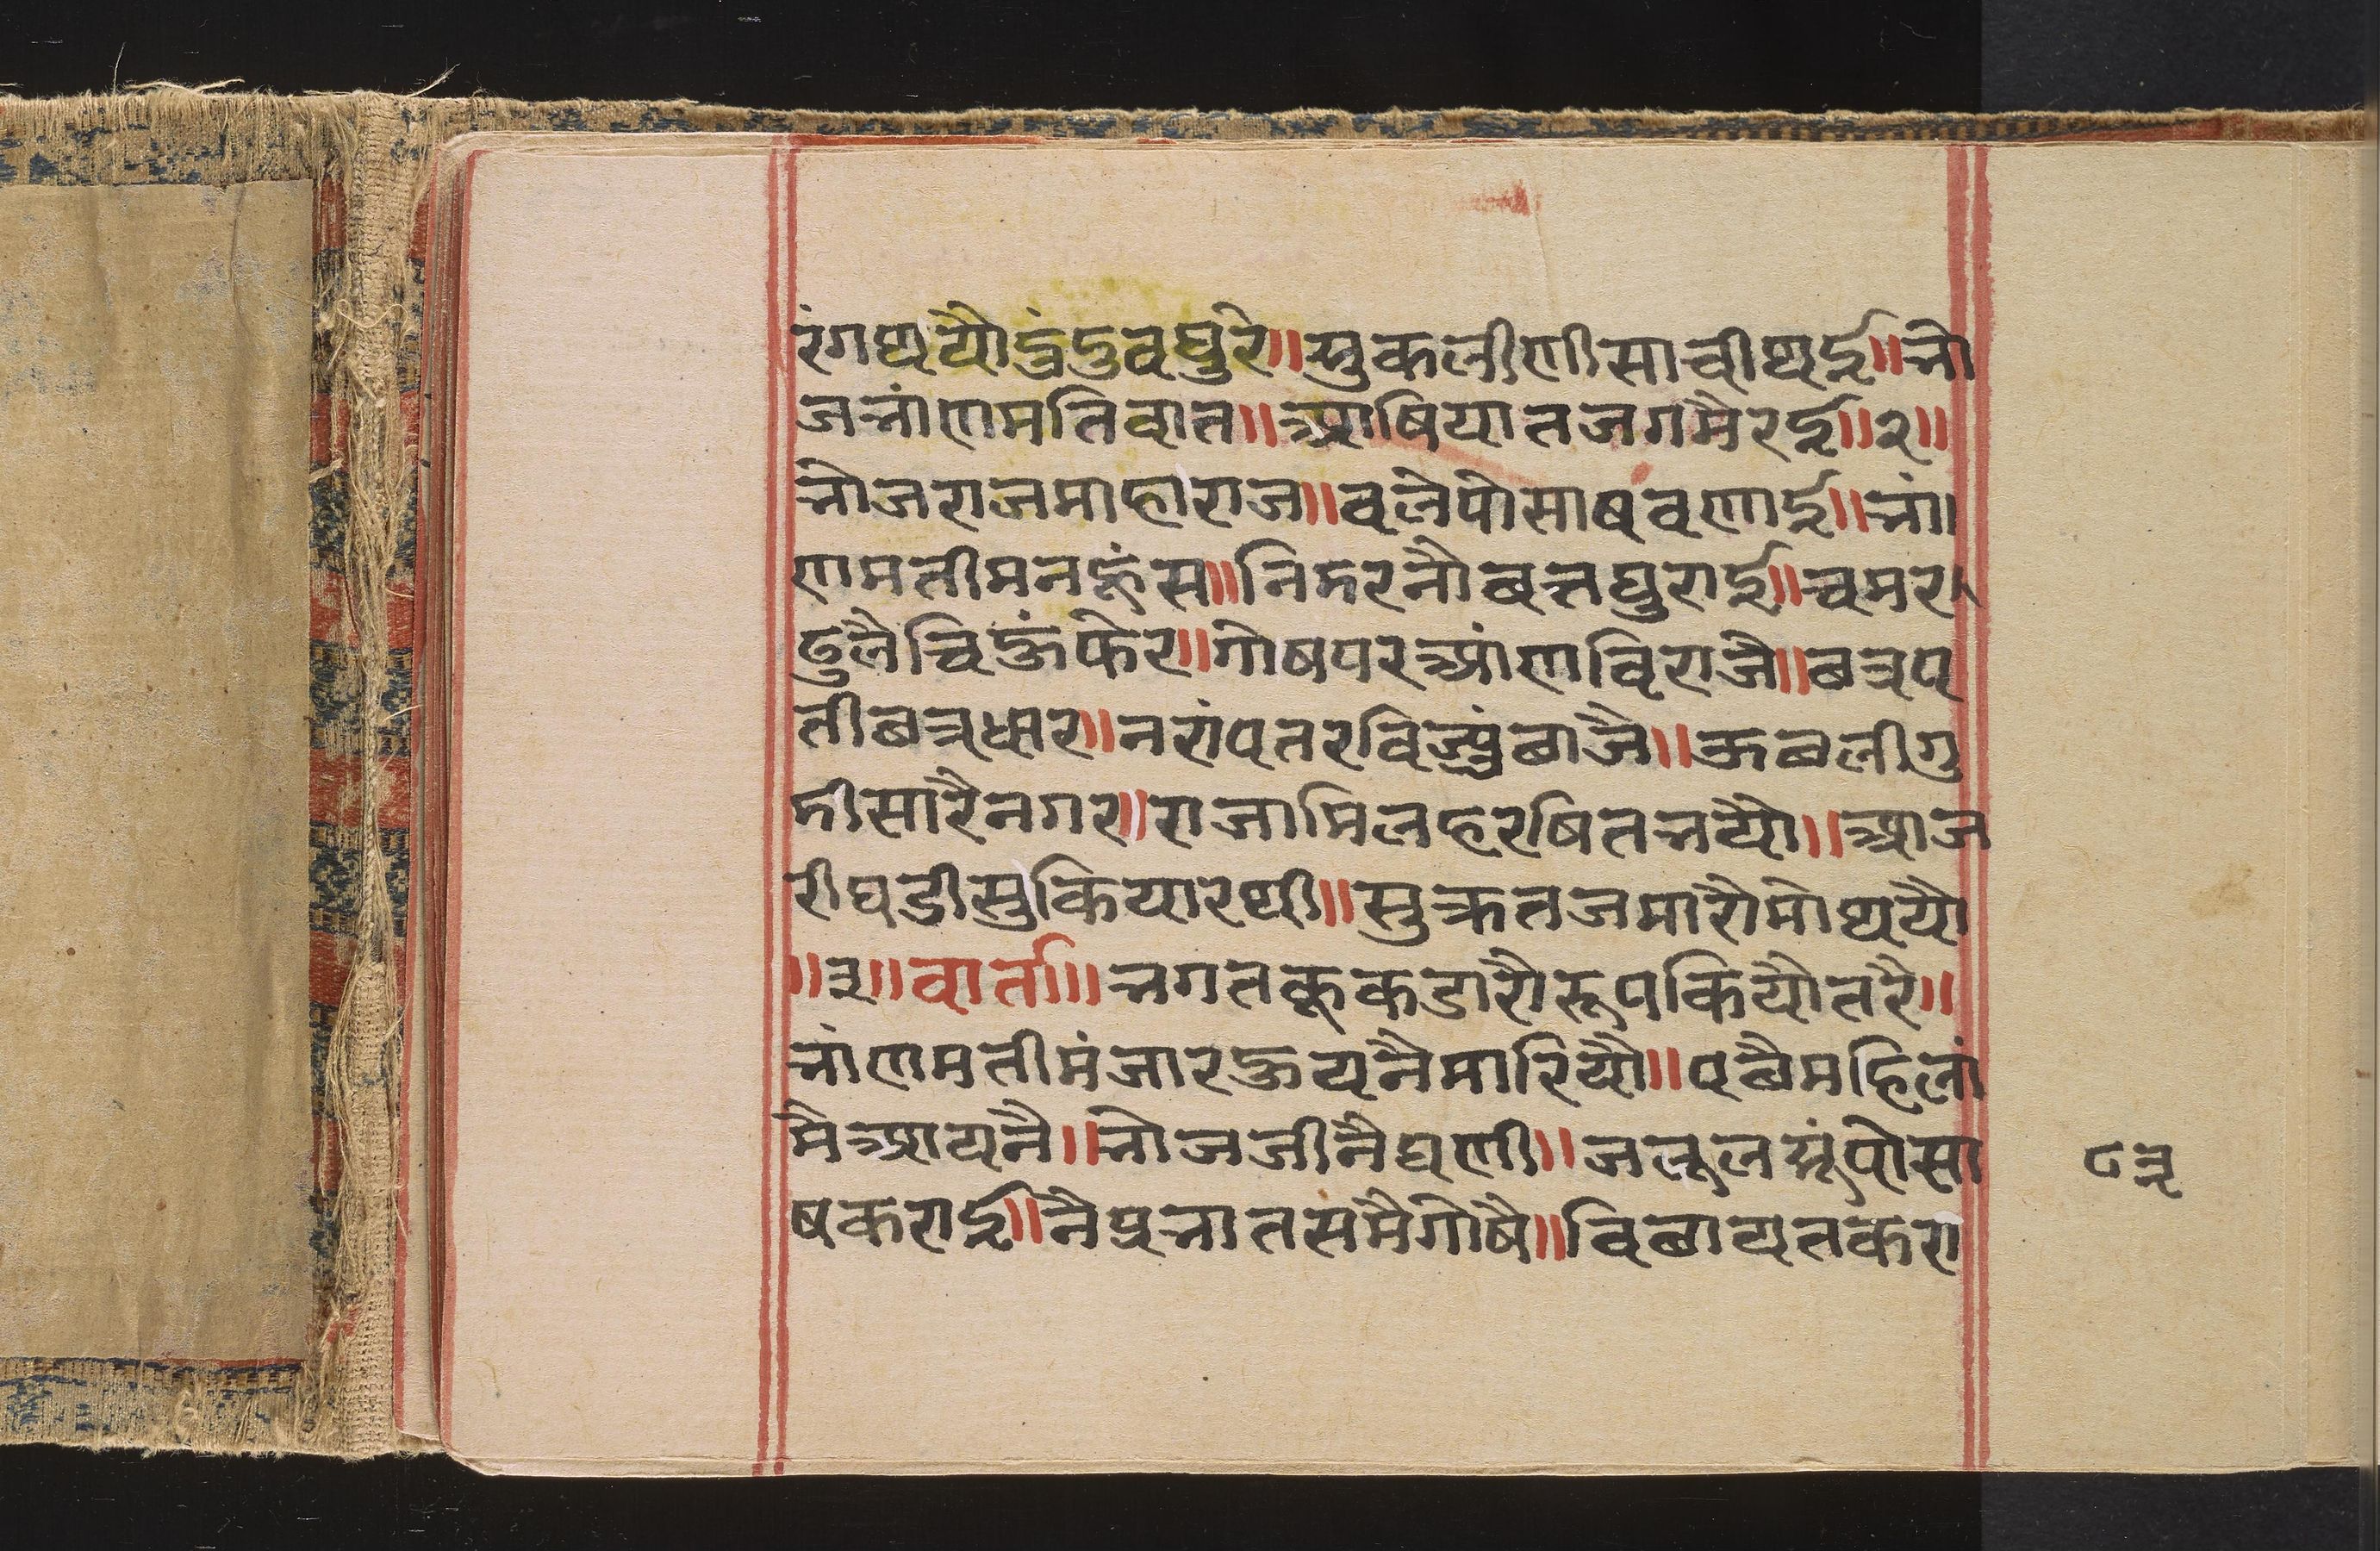 रंगथयौदुंदुवघुरे॥सुकलीणीसाचीथई॥भो
जभांणमतिवात॥आषियातजगमैरई॥२॥
भोजराजमाहाराज॥वलेपोसाषवणाई॥भां।
णमतीमनहंस॥निदरनौबतघुराई॥चमर
ढुलैचिहूंफेर॥गोषपरआंणविराजै॥छत्रप
तीछत्रधार॥नरांपतरविज्युंछाजै॥ऊछलीगु
दीसारैनगर॥राजामिलहरषितभयौ॥आज
रीघडीसुकियारथी॥सुक्रतजमारौमोथयौ
॥३॥वार्ता॥भगतकूकडारौरूपकियौतरै॥
भांणमतीमंजारहुयनैमारियौ॥पछैमहिलां
मैआयनै॥भोजजीनैघणी॥जलूलसूंपोसा
षकराई॥नैप्रभातसमैगोषै॥विछायतकरा
८३